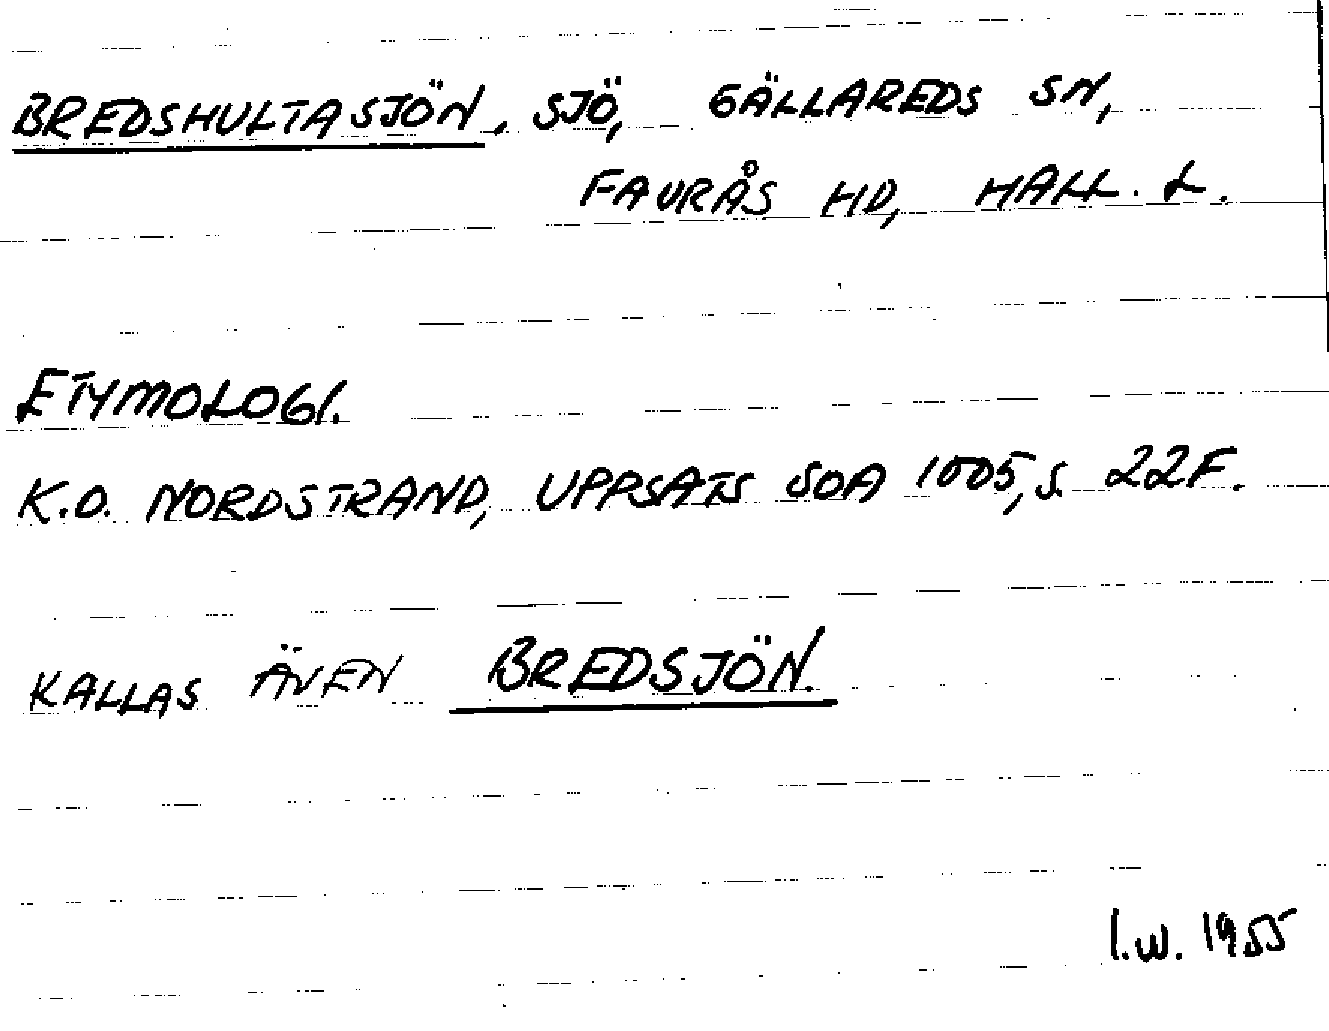 BREDSHULTASJÖN, SJÖ, GÄLLAREDS SN,
FAURÅS HD, HALL. L.
ETYMOLOGI.
K.O. NORDSTRAND, UPPSATS SOA 1005, S. 22F.
KALLAS ÄVEN BREDSJÖN.
I.W. 1955